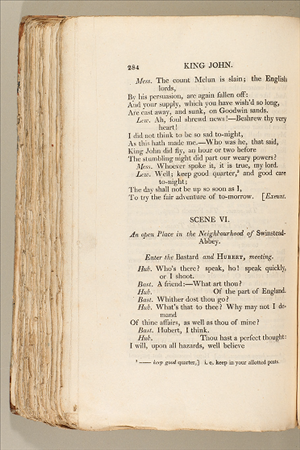 284 KING JOHN.
Mess. The count Melun is slain; the English
lords,
By his persuasion, are again fallen off:
And your supply, which you have wish'd so long,
Are cast away, and sunk, on Goodwin sands.
Lew. Ah, foul shrewd news!—Beshrew thy very
heart!
I did not think to be so sad to-night,
As this hath made me.—Who was he, that said,
King John did fly, an hour or two before
The stumbling night did part our weary powers?
Mess. Whoever spoke it, it is true, my lord.
Lew. Well; keep good quarter,⁴ and good care
to-night;
The day shall not be up so soon as I,
To try the fair adventure of to-morrow. [Exeunt.
SCENE VI.
An open Place in the Neighbourhood of Swinstead-
Abbey.
Enter the Bastard and HUBERT, meeting.
Hub. Who's there? speak, ho! speak quickly,
or I shoot.
Bast. A friend:—What art thou?
Hub. Of the part of England.
Bast. Whither dost thou go?
Hub. What's that to thee? Why may not I de-
mand
Of thine affairs, as well as thou of mine?
Bast. Hubert, I think.
Hub. Thou hast a perfect thought:
I will, upon all hazards, well believe
⁴ —— keep good quarter,] i. e. keep in your allotted posts.